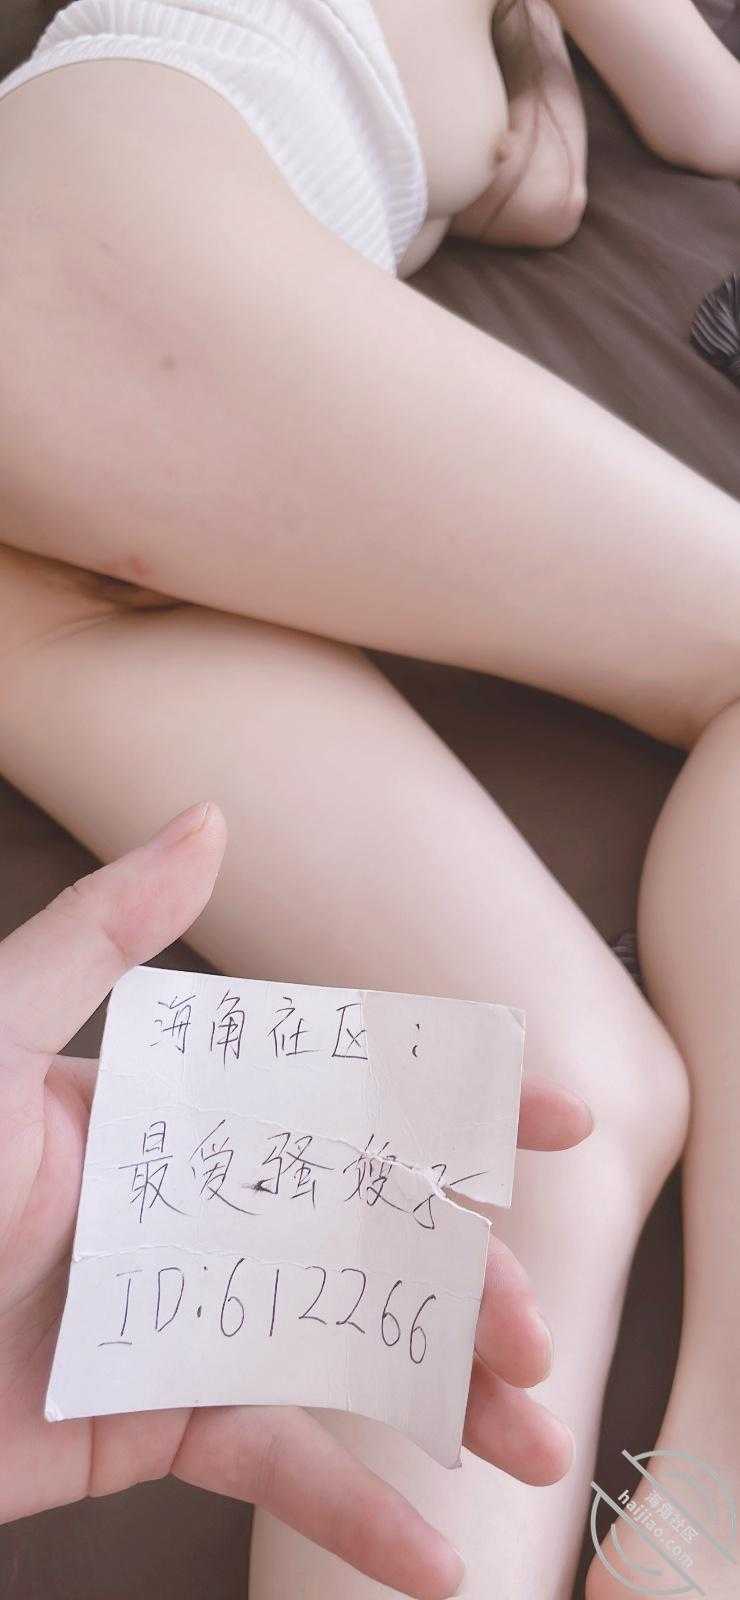 海角社区：
最爱骚嫂子
ID:612266
海角社区
haijiao.com